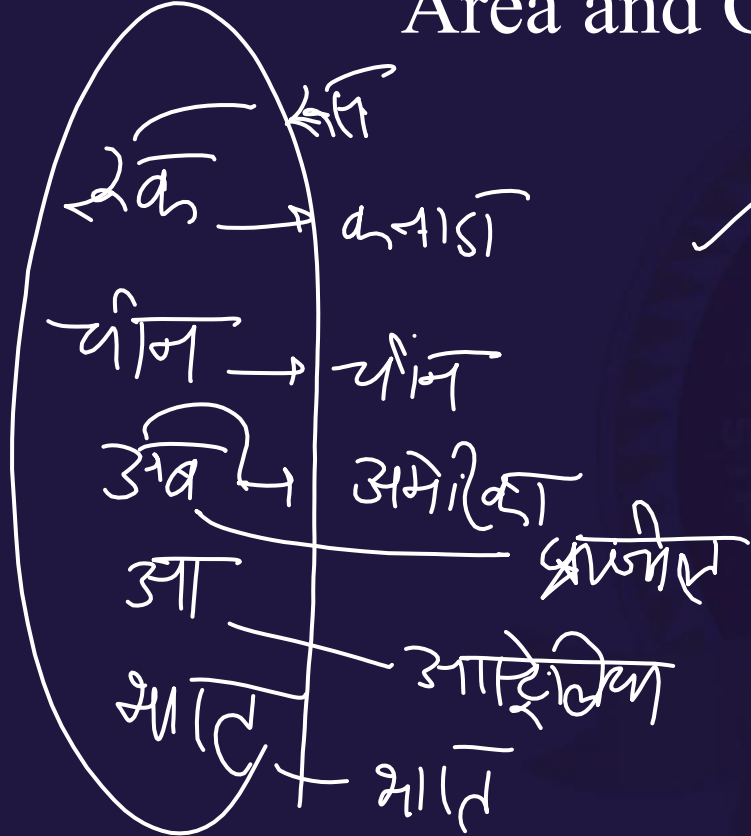 Area and
रूस
रुक → कनाडा
चीन → चीन
अब → अमेरिका
ब्राजील
आ
आस्ट्रेलिया
भारत
भारत